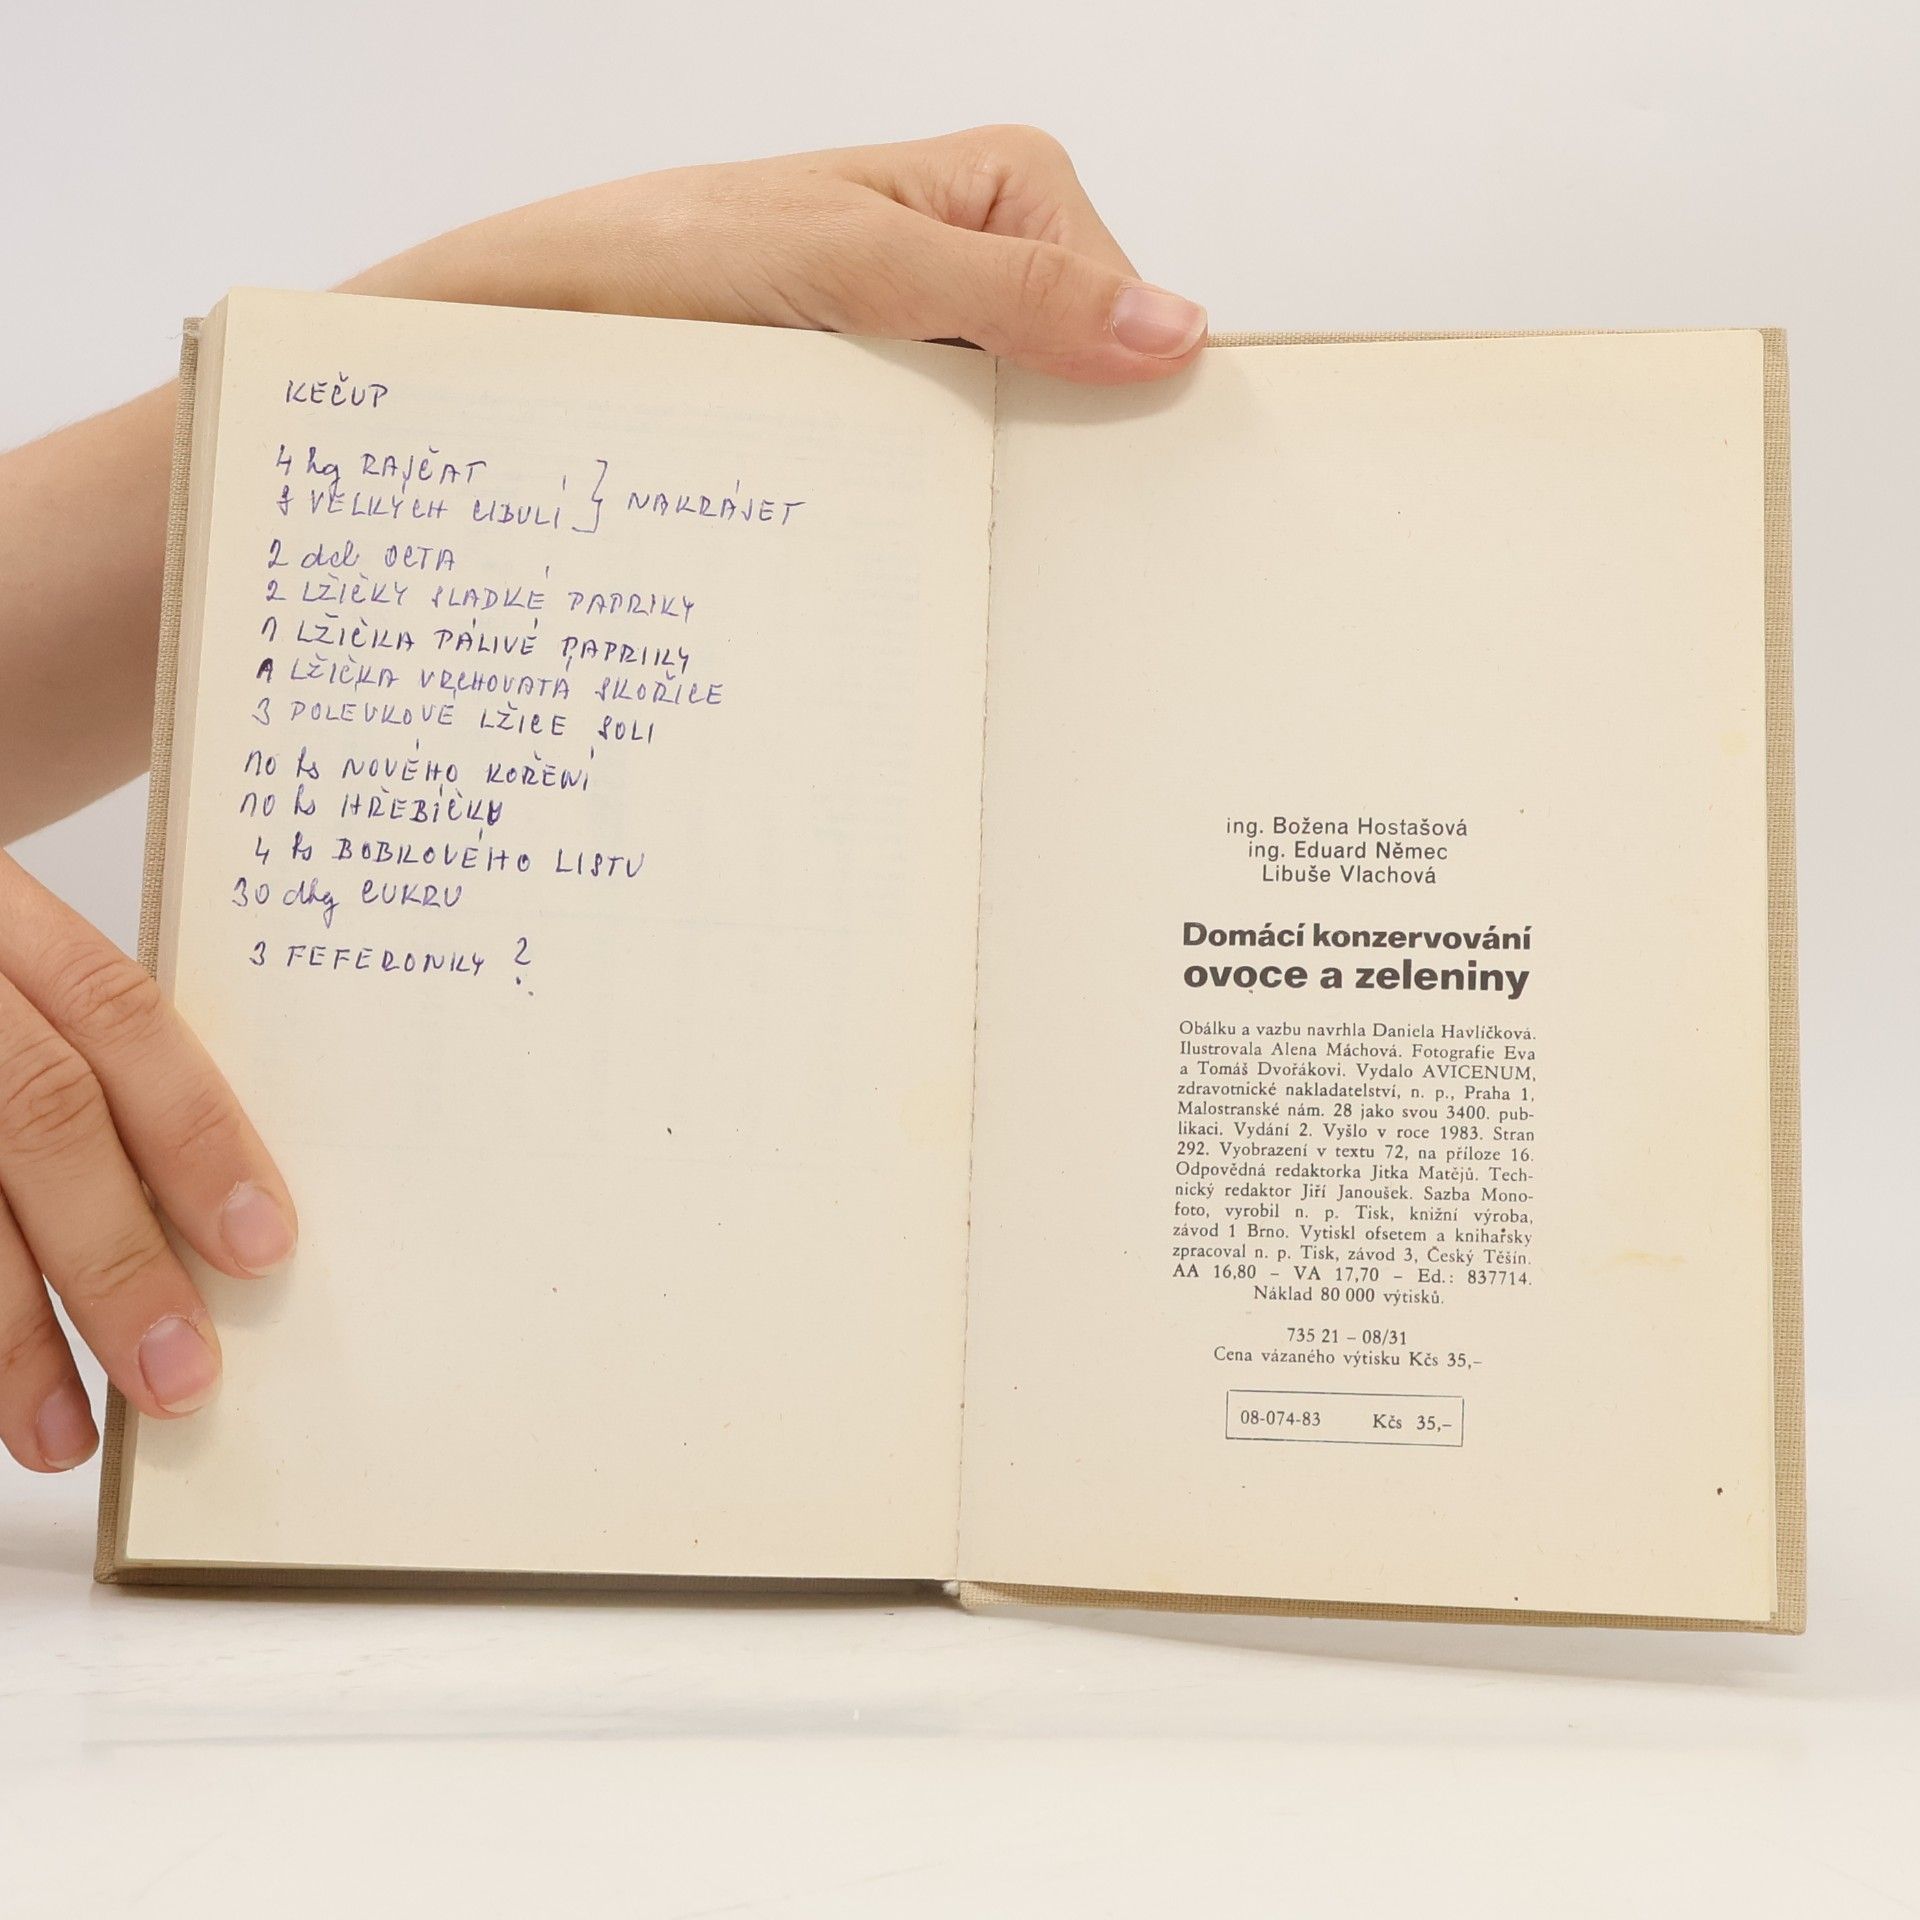 KEČUP
4 kg RAJČAT
8 VELKÝCH CIBULÍ } NAKRÁJET
2 dcl OCTA
2 LŽIČKY SLADKÉ PAPRIKY
1 LŽIČKA PÁLIVÉ PAPRIKY
1 LŽIČKA VRCHOVATÁ SKOŘICE
3 POLEVKOVÉ LŽICE SOLI
10 ks NOVÉHO KOŘENÍ
10 ks HŘEBÍČKU
4 ks BOBKOVÉHO LISTU
30 dkg CUKRU
3 FEFERONKY ?
ing. Božena Hostašová
ing. Eduard Němec
Libuše Vlachová
Domácí konzervování
ovoce a zeleniny
Obálku a vazbu navrhla Daniela Havlíčková.
Ilustrovala Alena Máchová. Fotografie Eva
a Tomáš Dvořákovi. Vydalo AVICENUM,
zdravotnické nakladatelství, n. p., Praha 1,
Malostranské nám. 28 jako svou 3400. pub-
likaci. Vydání 2. Vyšlo v roce 1983. Stran
292. Vyobrazení v textu 72, na příloze 16.
Odpovědná redaktorka Jitka Matějů. Tech-
nický redaktor Jiří Janoušek. Sazba Mono-
foto, vyrobil n. p. Tisk, knižní výroba,
závod 1 Brno. Vytiskl ofsetem a knihařsky
zpracoval n. p. Tisk, závod 3, Český Těšín.
AA 16,80 – VA 17,70 – Ed.: 837714.
Náklad 80 000 výtisků.
735 21 – 08/31
Cena vázaného výtisku Kčs 35,–
08-074-83 Kčs 35,–